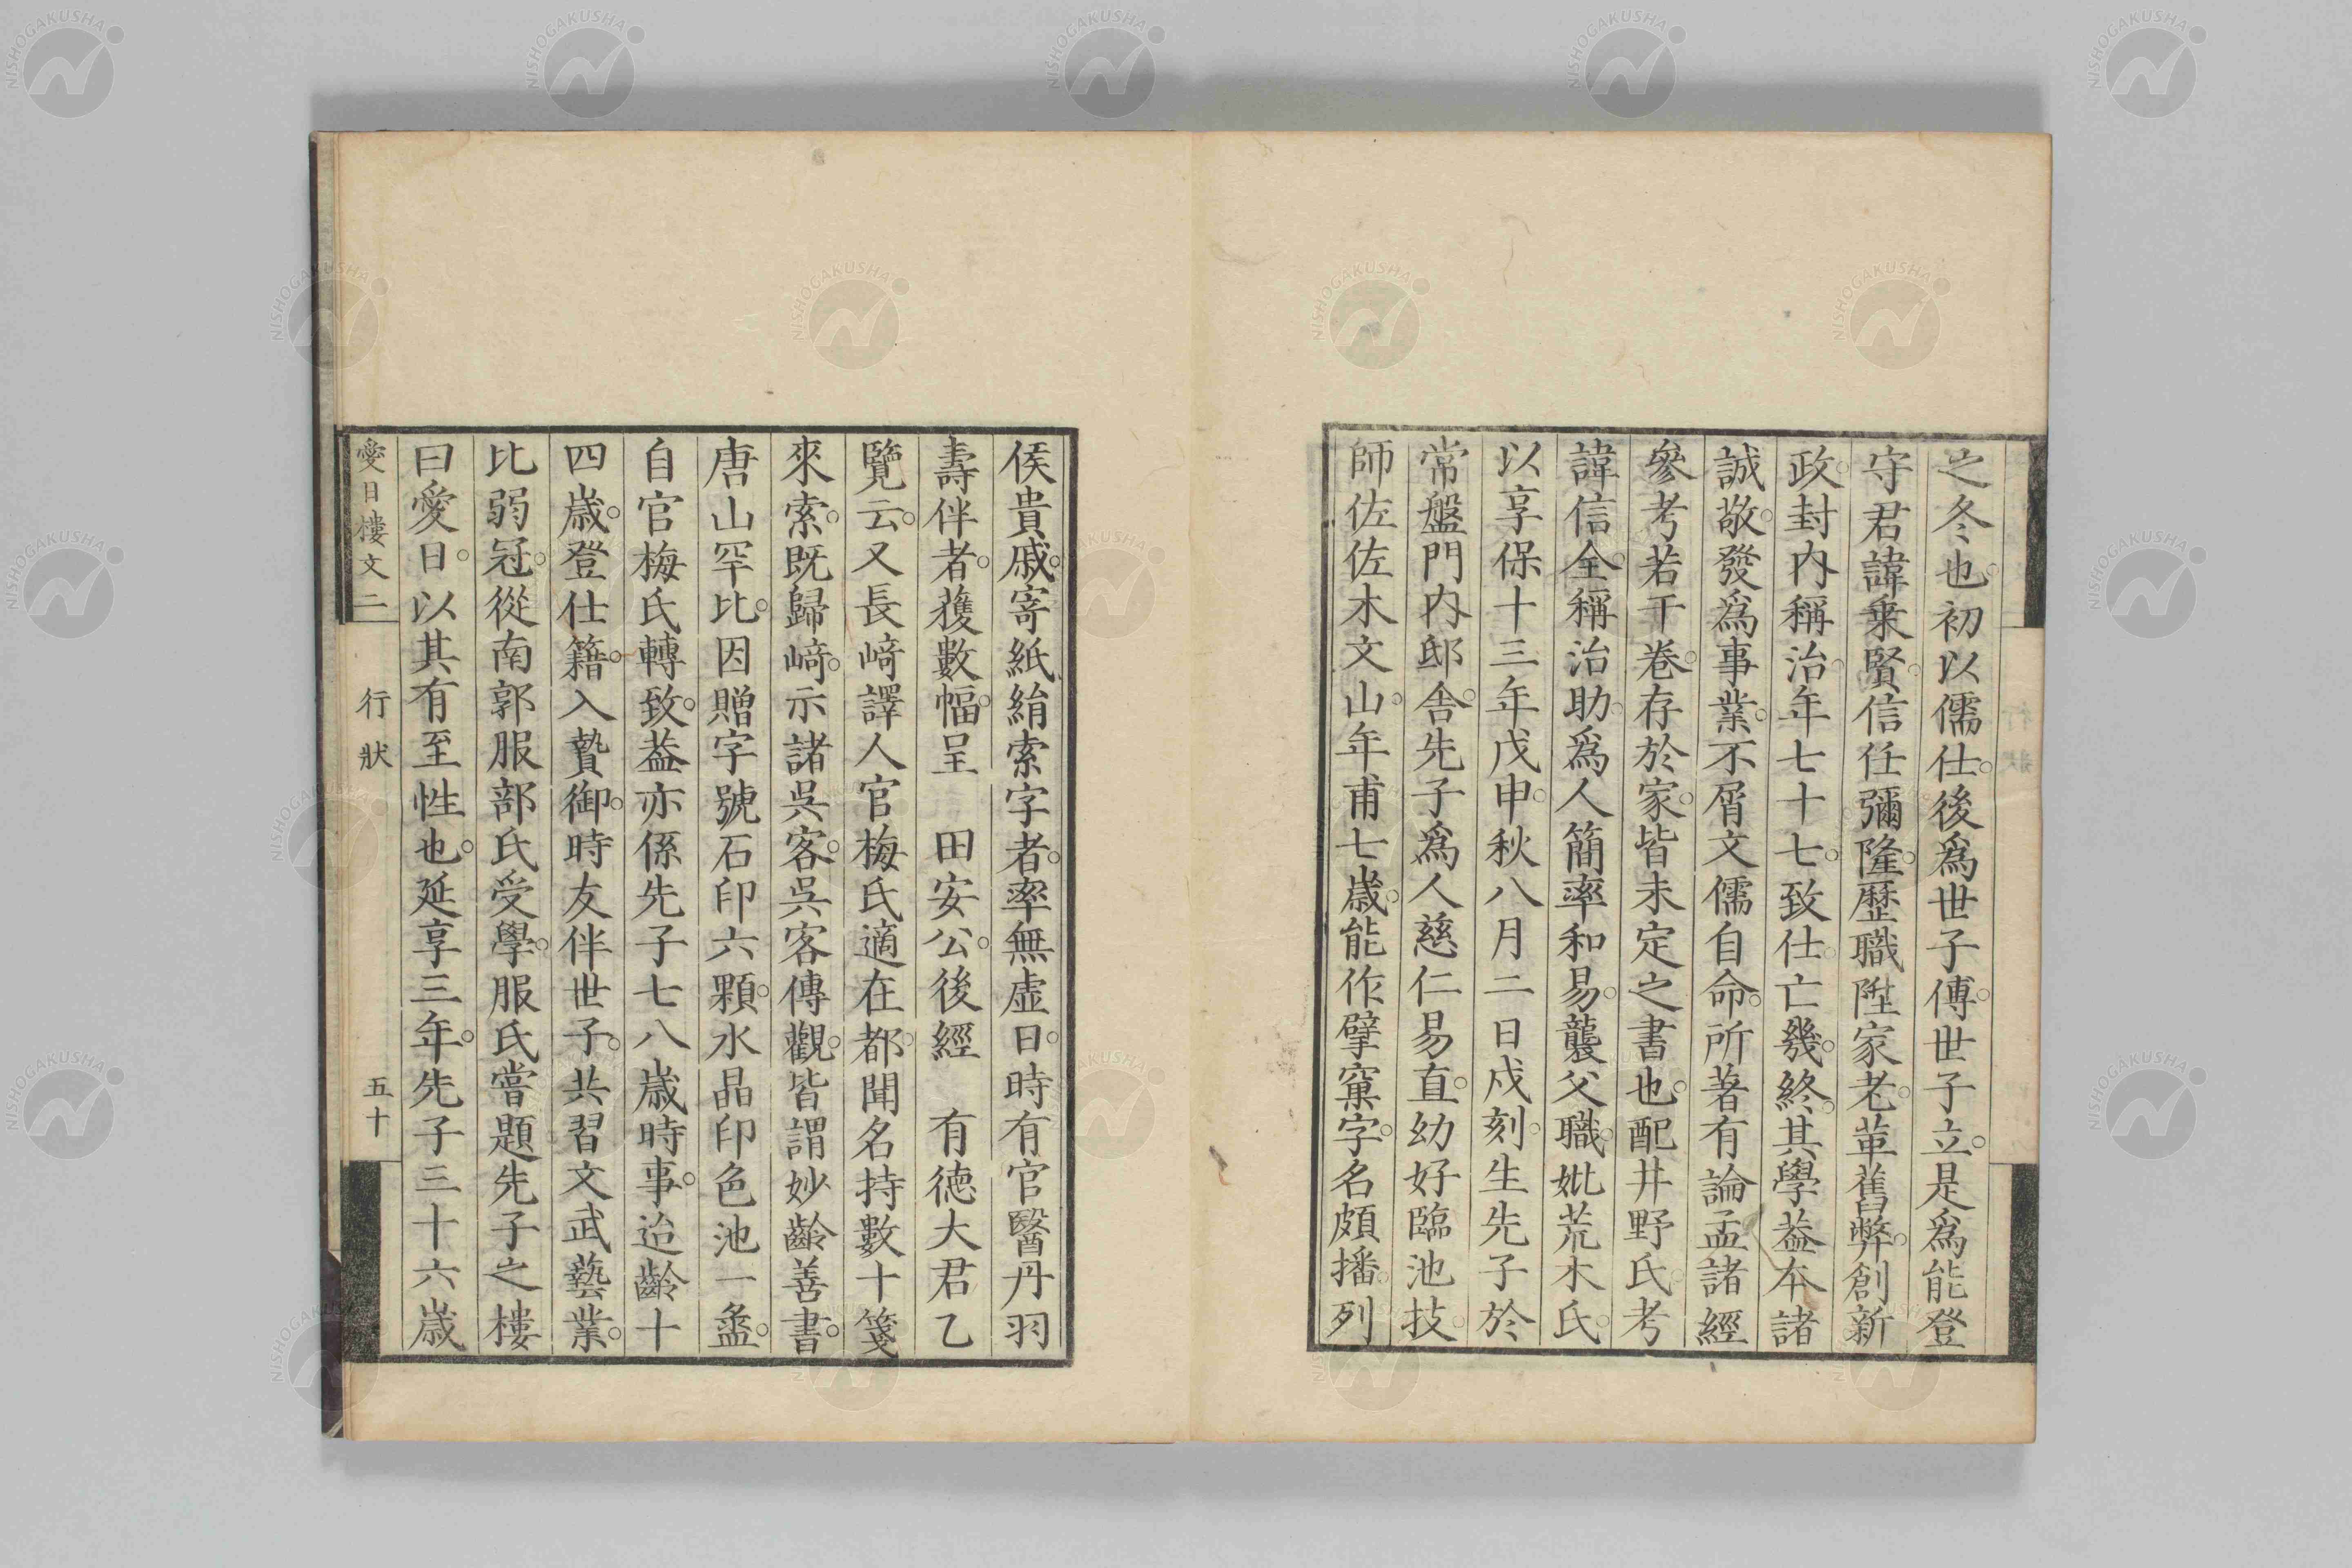 之冬也。初以儒仕。後爲世子傅。世子立。是爲能登
守君諱乘賢。信任彌隆。歷職陞家老。革舊弊。創新
政。封內稱治。年七十七。致仕。亡幾。終。其學益本諸
誠敬。發爲事業。不屑文儒自命。所著有論孟諸經
參考若干卷。存於家。皆未定之書也。配井野氏。考
諱信全。稱治助。爲人簡率和易。襲父職。妣荒木氏。
以享保十三年戊申。秋八月二日戍刻。生先子於
常盤門內邸舍。先子爲人慈仁易直。幼好臨池技。
師佐佐木文山。年甫七歲。能作擘窠字。名頗播。列
侯貴戚。寄紙絹索字者。率無虛日。時有官醫丹羽
壽伴者。獲數幅。呈 田安公。後經 有德大君乙
覽云。又長崎譯人官梅氏適在都。聞名持數十箋
來索。既歸崎。示諸吳客。吳客傳觀。皆謂妙齡善書。
唐山罕比。因贈字號石印六顆。水晶印色池一盞。
自官梅氏轉致。蓋亦係先子七八歲時事。迨齡十
四歲。登仕籍。入贄御。時友伴世子。共習文武藝業。
比弱冠。從南郭服部氏受學。服氏嘗題先子之樓
曰愛日。以其有至性也。延享三年。先子三十六歲
愛日樓文二 行狀 五十
NISHOGAKUSHA